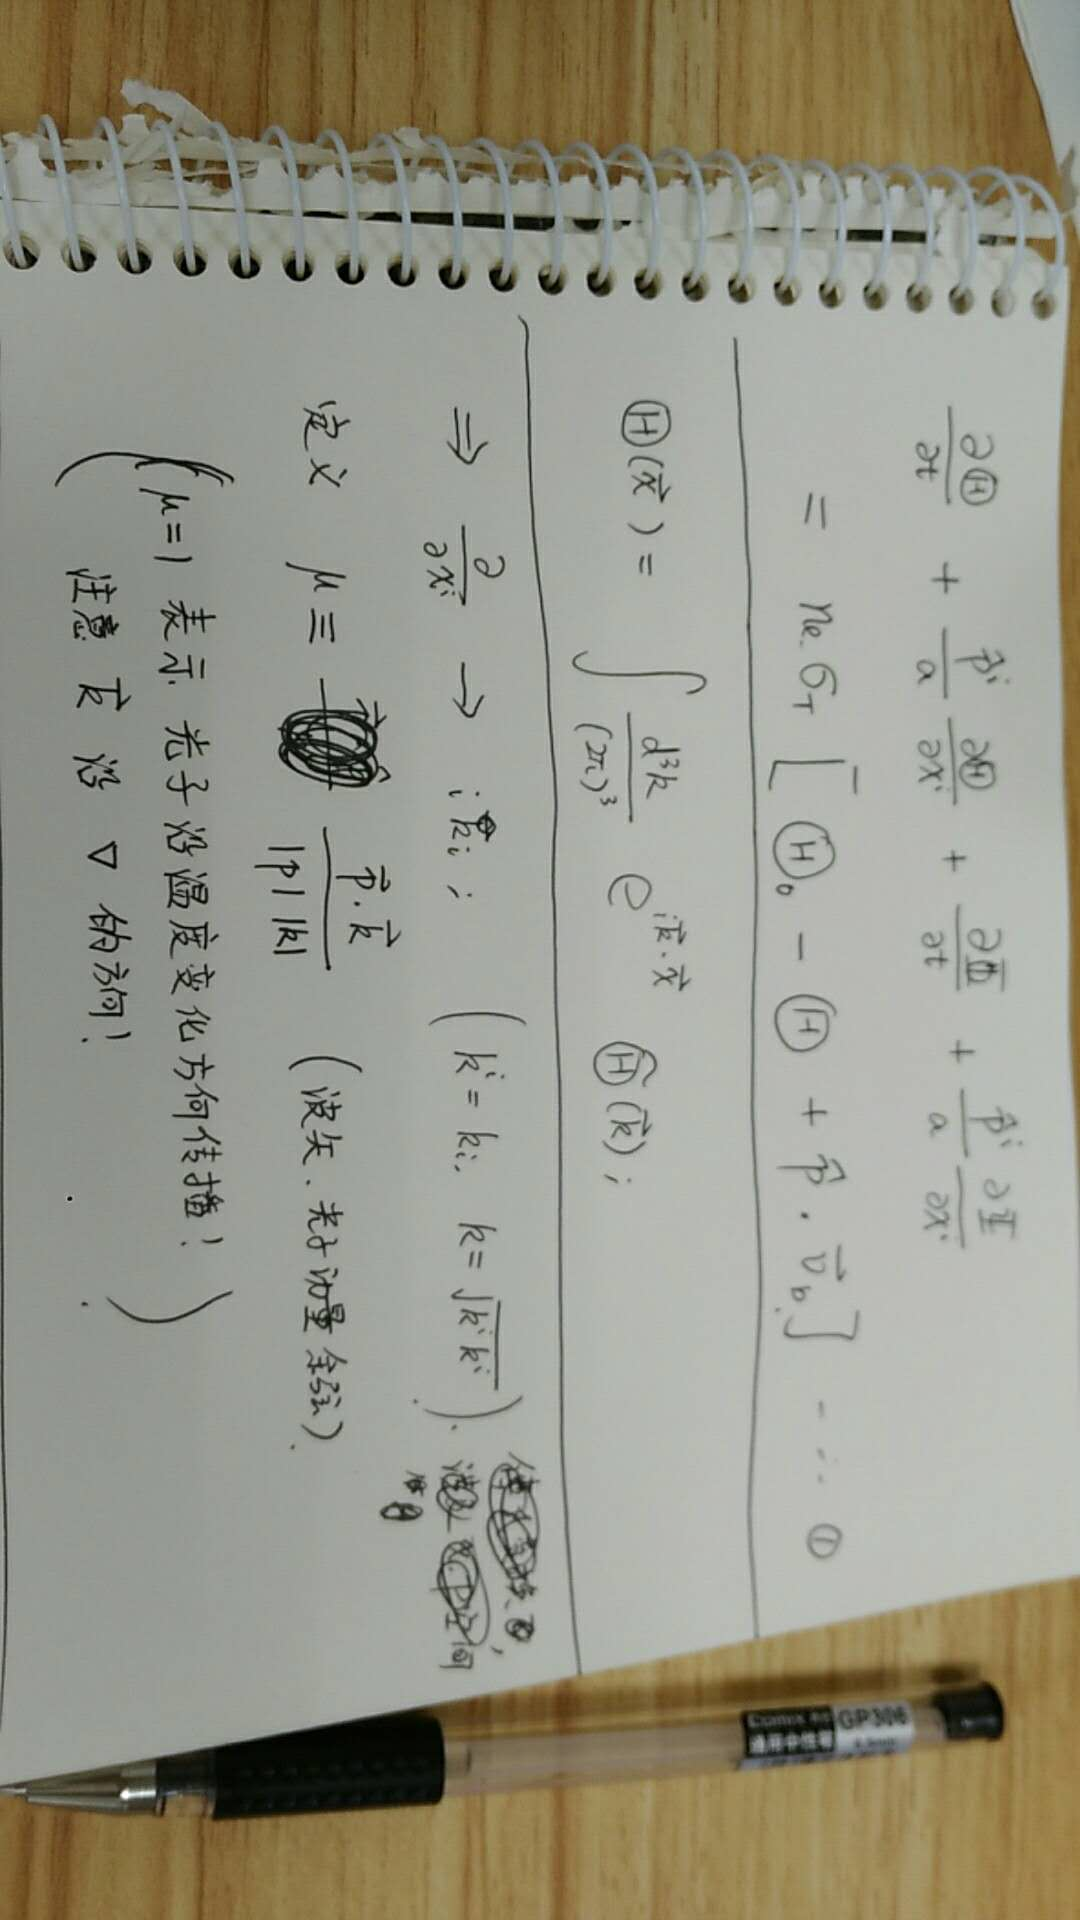 ∂Θ/∂t + p̂ⁱ/a ∂Θ/∂xⁱ + ∂Φ/∂t + p̂ⁱ/a ∂Ψ/∂xⁱ
= nₑ σ_T [ Θ₀ − Θ + p̂ · v⃗_b ] ... ①
Θ(x⃗) = ∫ d³k/(2π)³ e^{ik⃗·x⃗} Θ̃(k⃗) ;
⇒ ∂/∂xⁱ → i kᵢ ; ( kⁱ = kᵢ, k = √(kⁱkⁱ) ).
定义 μ ≡ p⃗·k⃗ / |p||k| (波矢、光子动量余弦).
( μ=1 表示 光子沿温度变化方向传播!
注意 k⃗ 沿 ∇ 的方向! )
Comix
GP306
通用中性笔